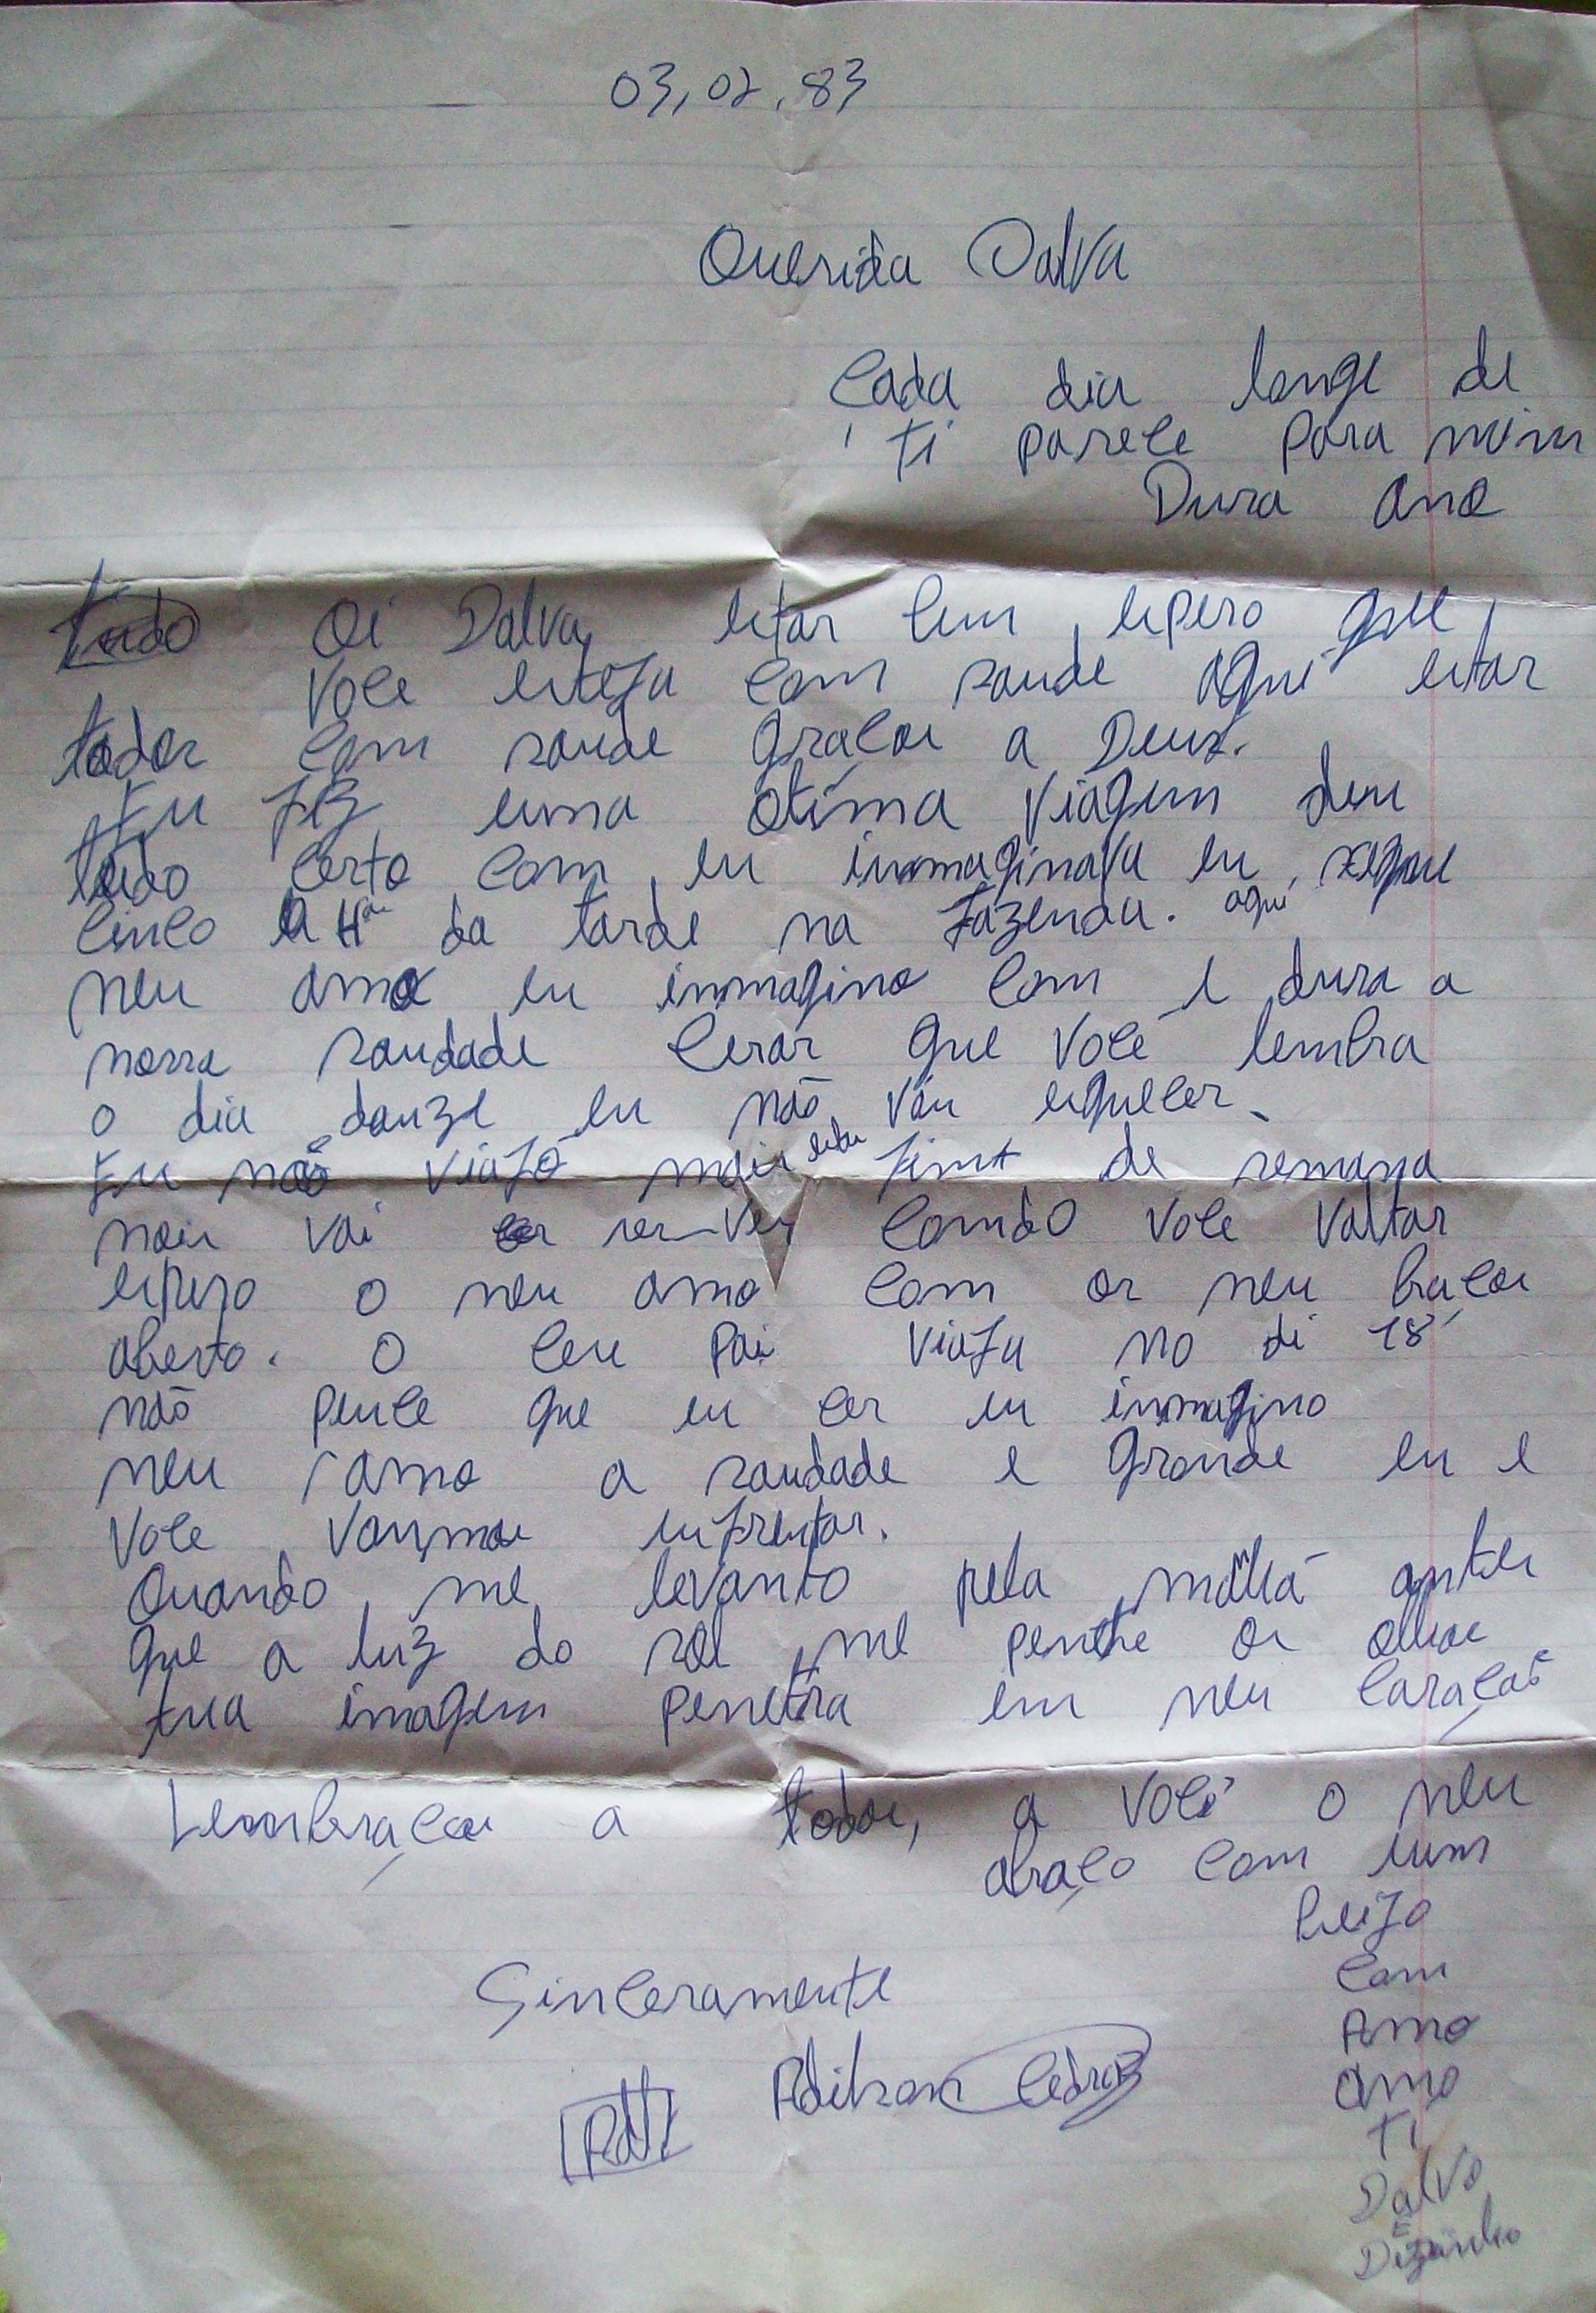 03,02,83
Querida Dalva
Cada dia longe de
ti parece para mim
Dura ano
Oi Dalva, estar bem, espero que
voce esteja com saude aqui estar
todos com saude graças a Deus.
Eu fiz uma otima viagem deu
tudo certo com eu immaginava eu
cinco da tarde na fazenda. aqui
meu amo eu immagino com e dura a
nossa saudade cerar que você lembra
o dia douze eu não vou esquecer.
Eu não viajo mais de semana
mais vai ser comdo voce voltar
espero o meu amo com os meu braços
aberto. O ceu pai viaja no di 18
não pence que eu cer eu immagino
meu amo a saudade e grande eu e
voce vou,mos enfrentar.
Quando me levanto pela antes
que a luz do sol me os olhos
tua imagem penetra em meu coração
Lembraças a todos, a você o meu
abraço com um
beijo
com
Amo
amo
Ti
Dalva
E
Sinceramente
Adilson